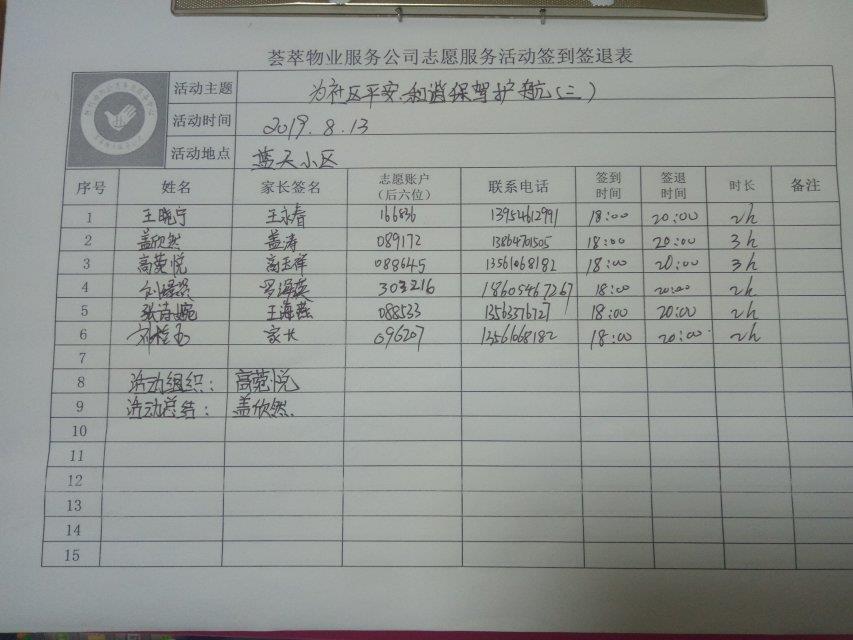 荟萃物业服务公司志愿服务活动签到签退表
活动主题 为社区平安、和谐保驾护航(三)
活动时间 2019.8.13
活动地点 蓝天小区
序号 姓名 家长签名 志愿账户(后六位) 联系电话 签到时间 签退时间 时长 备注
1 王晓宁 王永春 166836 13954612991 18:00 20:00 2h
2 盖欣然 盖涛 089172 13864701505 18:00 20:00 3h
3 高荣悦 高玉祥 088645 13561068182 18:00 20:00 3h
4 303216 18605467267 18:00 20:00 2h
5 张诗婉 王海燕 088533 13563376727 18:00 20:00 2h
6 家长 096207 13561068182 18:00 20:00 2h
7
8 活动组织: 高荣悦
9 活动总结: 盖欣然.
10
11
12
13
14
15